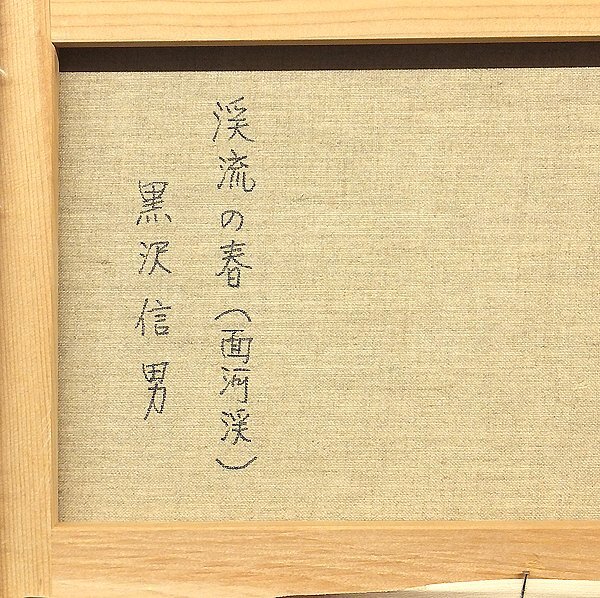 渓流の春(面河渓)
黒沢信男